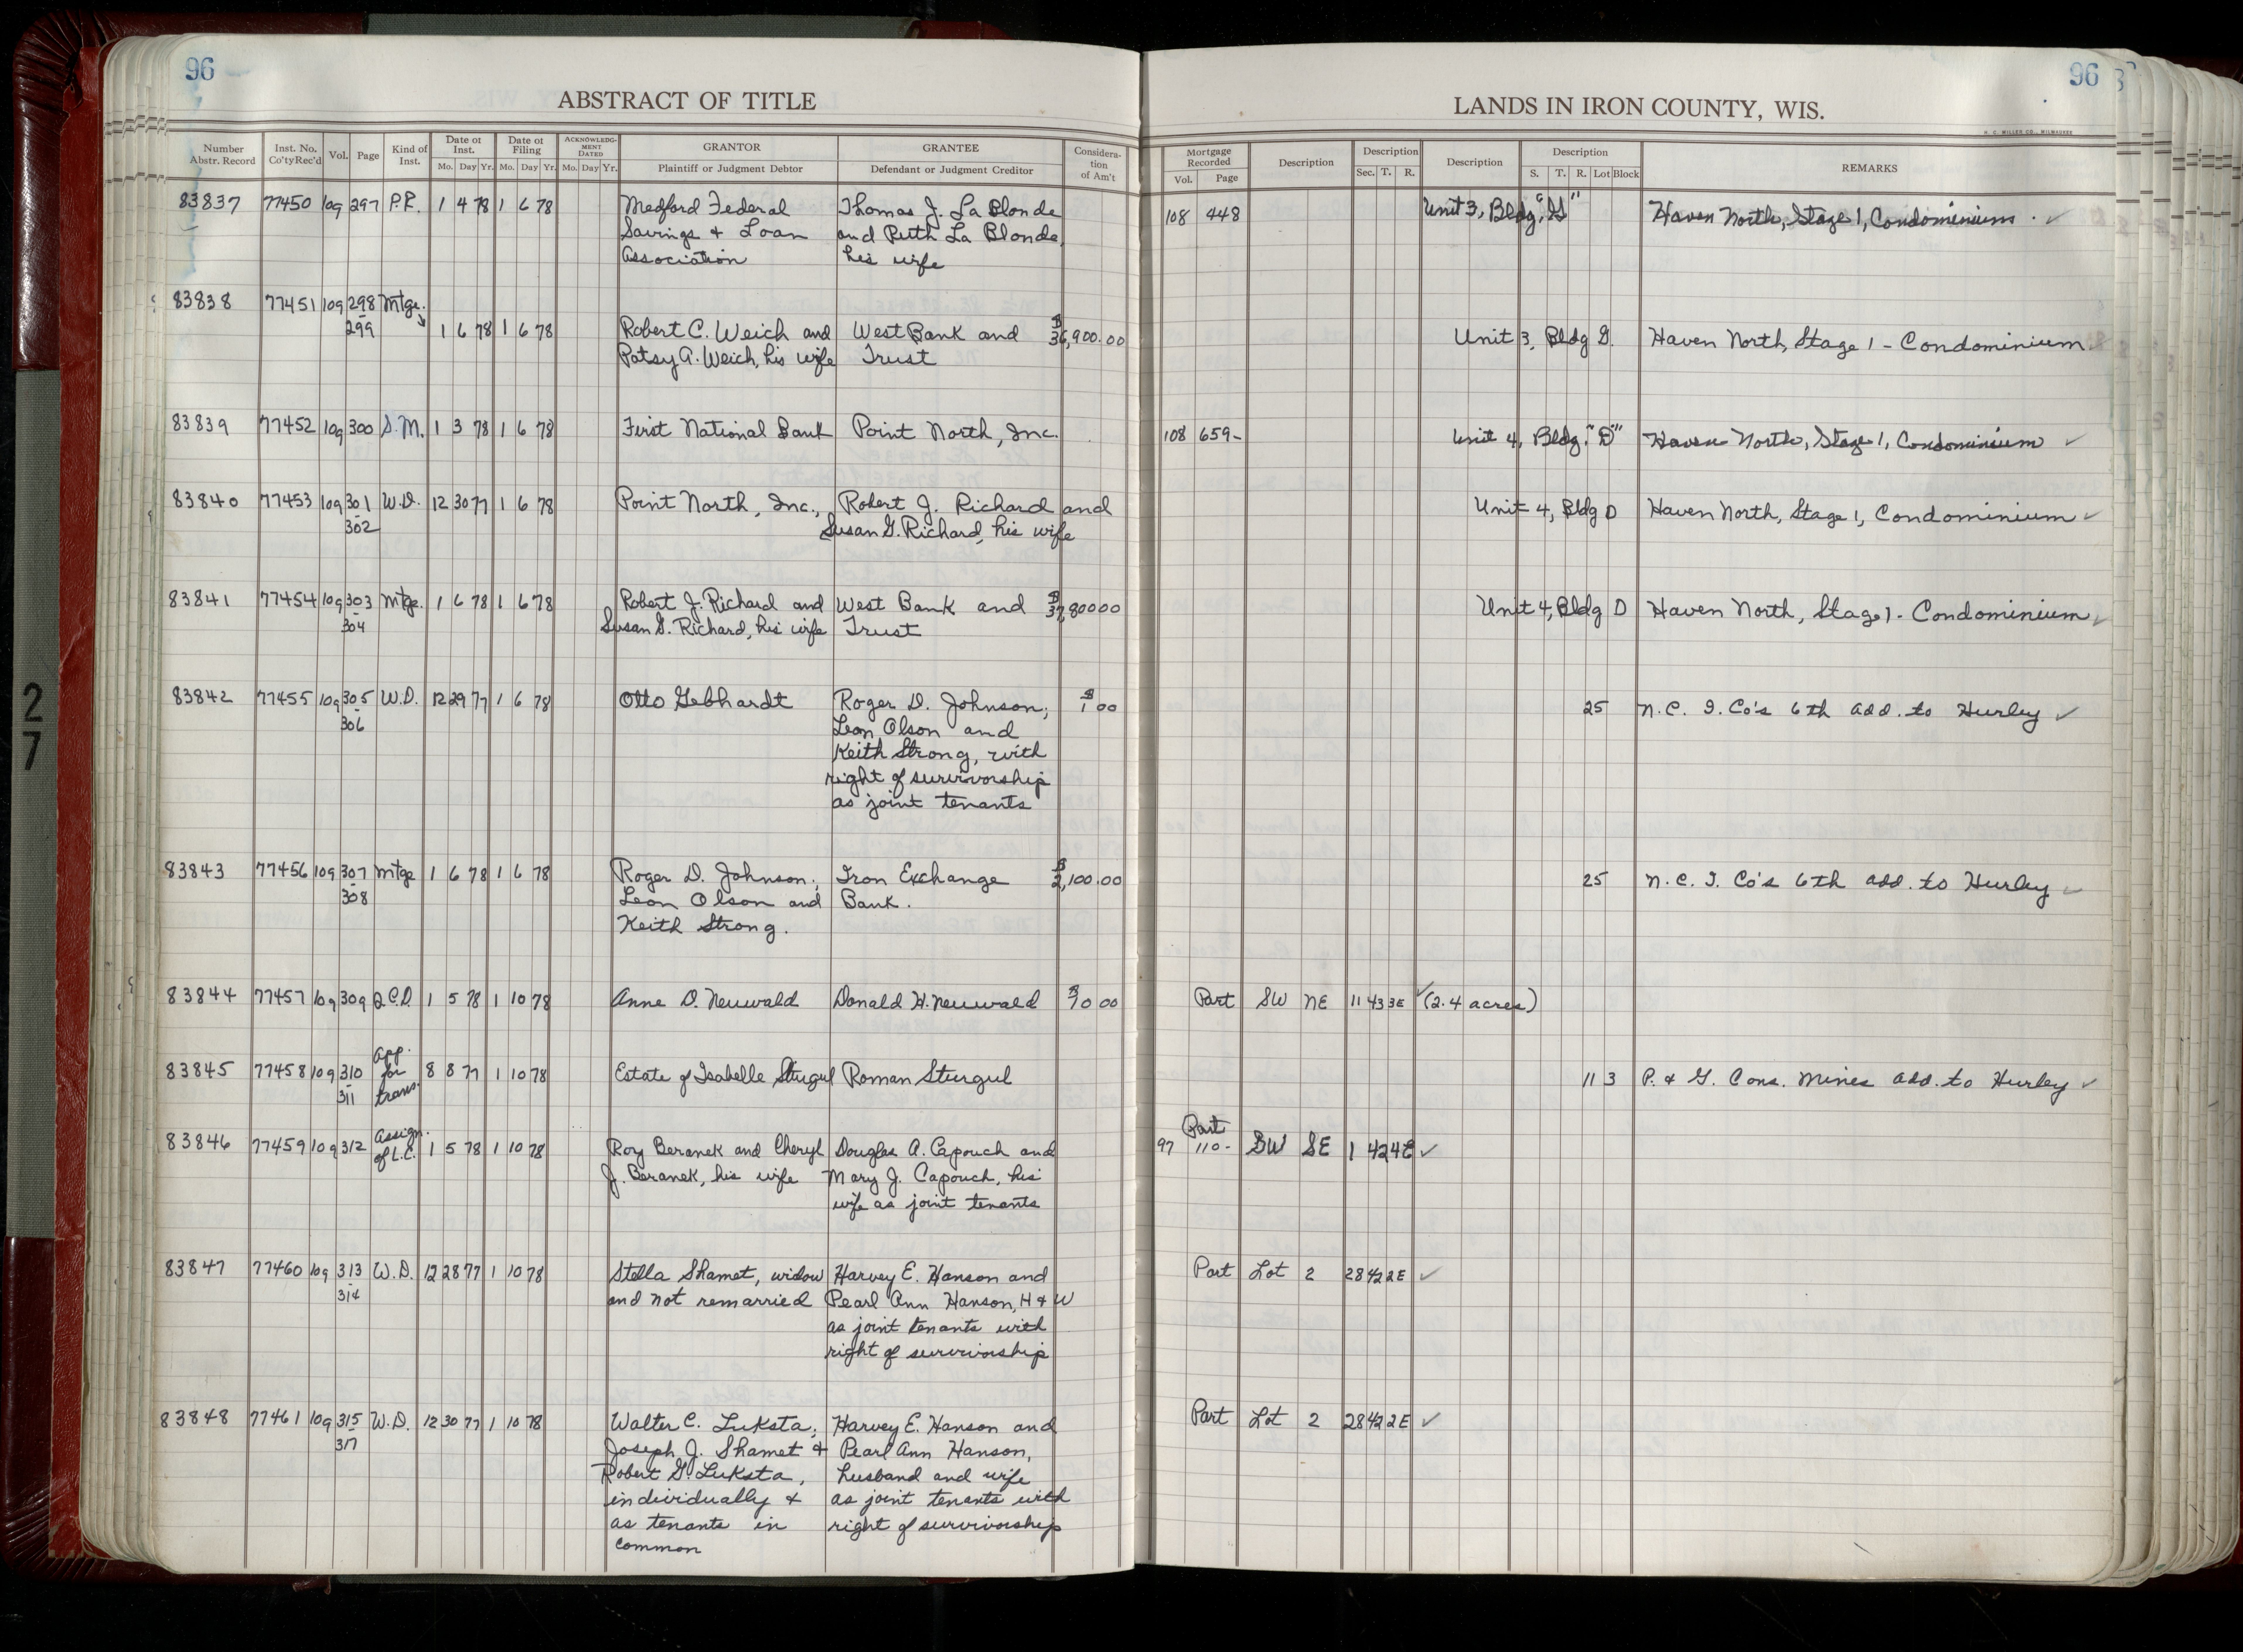 96
ABSTRACT OF TITLE
LANDS IN IRON COUNTY, WIS.
96
H. C. MILLER CO., MILWAUKEE
Number Abstr. Record Inst. No. Co'tyRec'd Vol. Page Kind of Inst. Date of Inst. Mo. Day Yr. Date of Filing Mo. Day Yr. ACKNOWLEDGMENT DATED Mo. Day Yr. GRANTOR Plaintiff or Judgment Debtor GRANTEE Defendant or Judgment Creditor Consideration of Am't Mortgage Recorded Vol. Page Description Description Sec. T. R. Description Description S. T. R. Lot Block REMARKS
83837 77450 109 297 P.R. 1 4 78 1 6 78 Medford Federal Thomas J. La Blonde 108 448 Unit 3, Bldg. "G" Haven North, Stage 1, Condominium. ✓
Savings & Loan and Ruth La Blonde,
Association his wife
83838 77451 109 298 Mtge.
- 299 1 6 78 1 6 78 Robert C. Weich and West Bank and $36,900.00 Unit 3, Bldg G. Haven North, Stage 1 - Condominium
Patsy A. Weich, his wife Trust
83839 77452 109 300 S.M. 1 3 78 1 6 78 First National Bank Point North, Inc. 108 659- Unit 4, Bldg. "D" Haven North, Stage 1, Condominium ✓
83840 77453 109 301 W.D. 12 30 77 1 6 78 Point North, Inc., Robert J. Richard and Unit 4, Bldg D Haven North, Stage 1, Condominium ✓
- 302 Susan G. Richard, his wife
83841 77454 109 303 Mtge. 1 6 78 1 6 78 Robert J. Richard and West Bank and $37,800 00 Unit 4, Bldg D Haven North, Stage 1 - Condominium ✓
304 Susan G. Richard, his wife Trust
83842 77455 109 305 W.D. 12 29 77 1 6 78 Otto Gebhardt Roger D. Johnson; $1 00 25 N.C. I. Co's 6th add. to Hurley ✓
- 306 Leon Olson and
Keith Strong, with
right of survivorship
as joint tenants
83843 77456 109 307 Mtge 1 6 78 1 6 78 Roger D. Johnson; Iron Exchange $2,100.00 25 N.C. I. Co's 6th add. to Hurley ✓
- 308 Leon Olson and Bank.
Keith Strong.
83844 77457 109 309 Q.C.D. 1 5 78 1 10 78 Anne D. Neuwald Donald H. Neuwald $10 00 Part SW NE 11 43 3E ✓ (2.4 acres)
83845 77458 109 310 App. for trans. 8 8 77 1 10 78 Estate of Isabelle Sturgul Roman Sturgul 11 3 P. & G. Cons. Mines add. to Hurley ✓
- 311
83846 77459 109 312 Assign. of L.C. 1 5 78 1 10 78 Rory Beranek and Cheryl Douglas A. Capouch and 97 110- Part SW SE 1 42 4E ✓
J. Beranek, his wife Mary J. Capouch, his
wife as joint tenants
83847 77460 109 313 W.D. 12 28 77 1 10 78 Stella Shamet, widow Harvey E. Hanson and Part Lot 2 28 42 2E ✓
314 and not remarried Pearl Ann Hanson, H & W
as joint tenants with
right of survivorship
83848 77461 109 315 W.D. 12 30 77 1 10 78 Walter C. Luksta; Harvey E. Hanson and Part Lot 2 28 42 2E ✓
- 317 Joseph J. Shamet & Pearl Ann Hanson,
Robert G. Luksta, husband and wife
individually & as joint tenants with
as tenants in right of survivorship
common
27